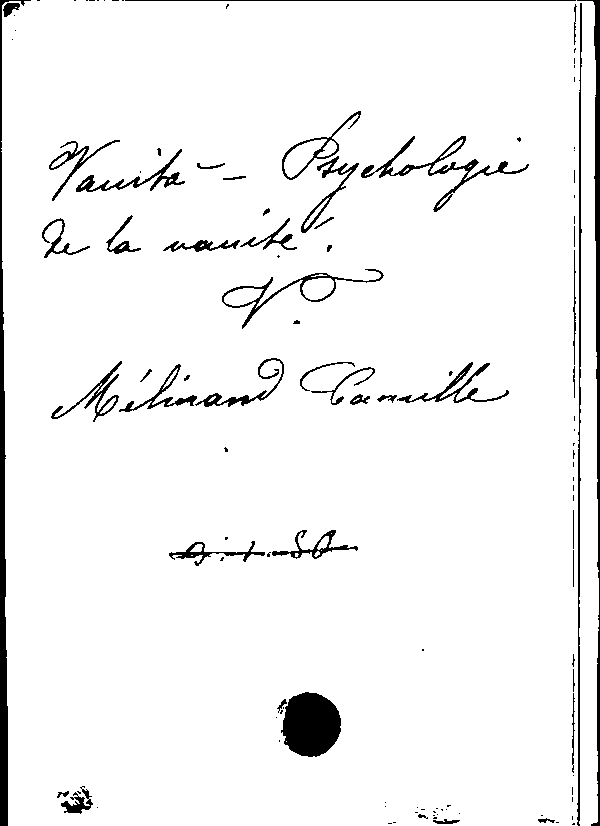 Vanità - Psychologie
de la vanité.
V.
Mélinand Camille